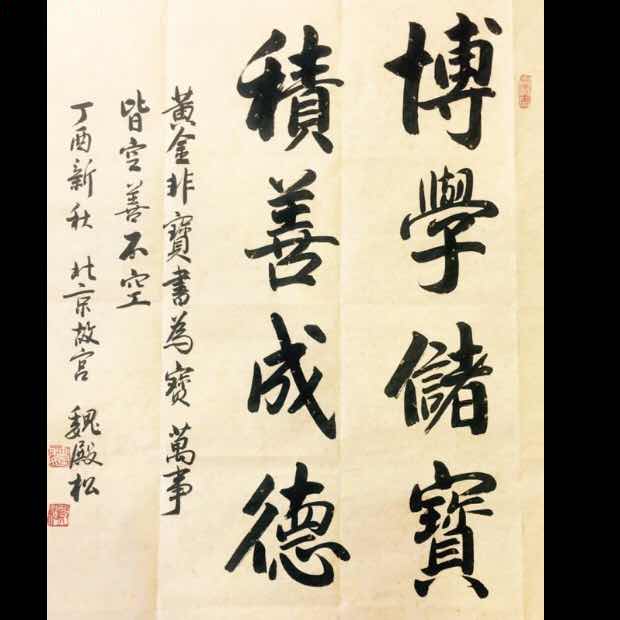 博學儲寶
積善成德
黄金非寶書為寶萬事
皆空善不空
丁酉新秋 北京故宫 魏殿松